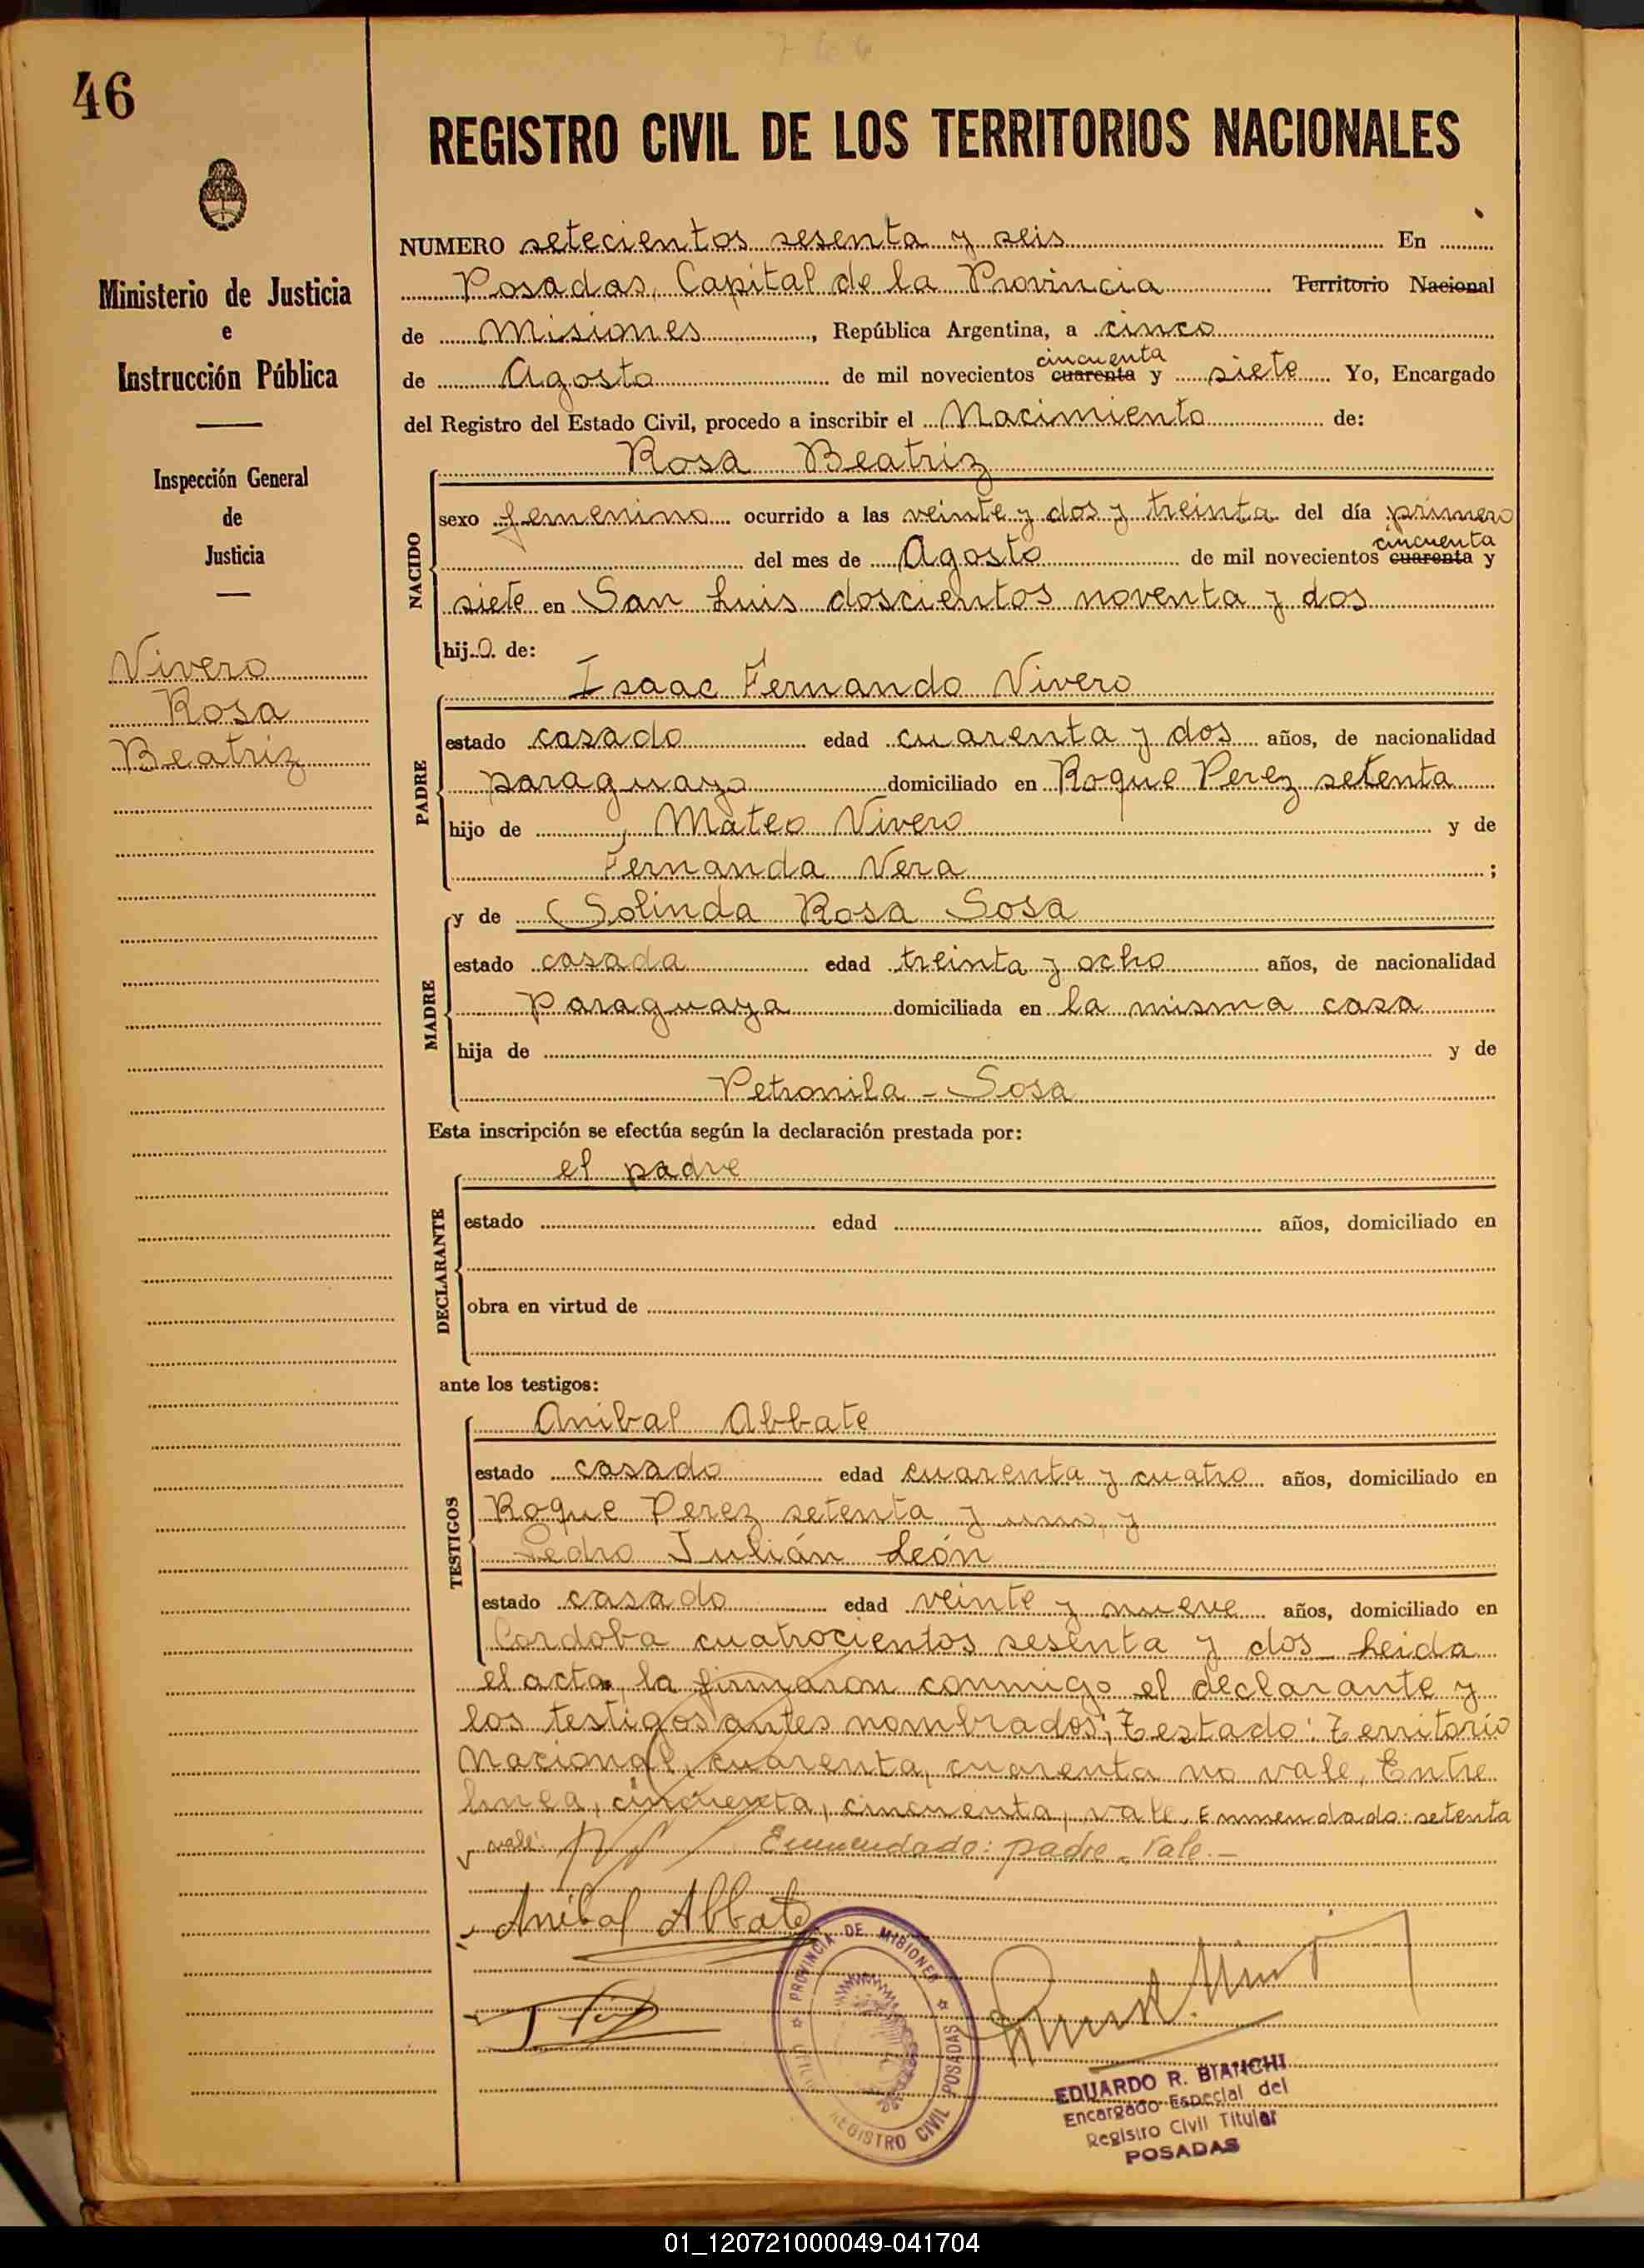 766
46
REGISTRO CIVIL DE LOS TERRITORIOS NACIONALES
Ministerio de Justicia
e
Instrucción Pública
Inspección General
de
Justicia
Vivero
Rosa
Beatriz
NUMERO setecientos sesenta y seis En
Posadas, Capital de la Provincia Territorio Nacional
de Misiones, República Argentina, a cinco
cincuenta
de Agosto de mil novecientos cuarenta y siete Yo, Encargado
del Registro del Estado Civil, procedo a inscribir el Nacimiento de:
NACIDO
Rosa Beatriz
sexo femenino ocurrido a las veinte y dos y treinta del día primero
cincuenta
del mes de Agosto de mil novecientos cuarenta y
siete en San Luis doscientos noventa y dos
hijo de:
PADRE
Isaac Fernando Vivero
estado casado edad cuarenta y dos años, de nacionalidad
paraguayo domiciliado en Roque Perez setenta
hijo de Mateo Vivero y de
Fernanda Vera ;
MADRE
y de Solinda Rosa Sosa
estado casada edad treinta y ocho años, de nacionalidad
Paraguaya domiciliada en la misma casa
hija de y de
Petronila - Sosa
Esta inscripción se efectúa según la declaración prestada por:
DECLARANTE
el padre
estado edad años, domiciliado en
obra en virtud de
ante los testigos:
TESTIGOS
Anibal Abbate
estado casado edad cuarenta y cuatro años, domiciliado en
Roque Perez setenta y uno, y
Pedro Julián León
estado casado edad veinte y nueve años, domiciliado en
Cordoba cuatrocientos sesenta y dos - Leida
el acta, la firmaron conmigo el declarante y
los testigos antes nombrados; Testado: Territorio
Nacional, cuarenta, cuarenta no vale, Entre
linea, cincuenta, cincuenta, vale, Enmendado: setenta
vale. Enmendado: padre - Vale. -
Anibal Abbate
PROVINCIA DE MISIONES
REGISTRO CIVIL POSADAS
EDUARDO R. BIANCHI
Encargado Especial del
Registro Civil Titular
POSADAS
01_120721000049-041704